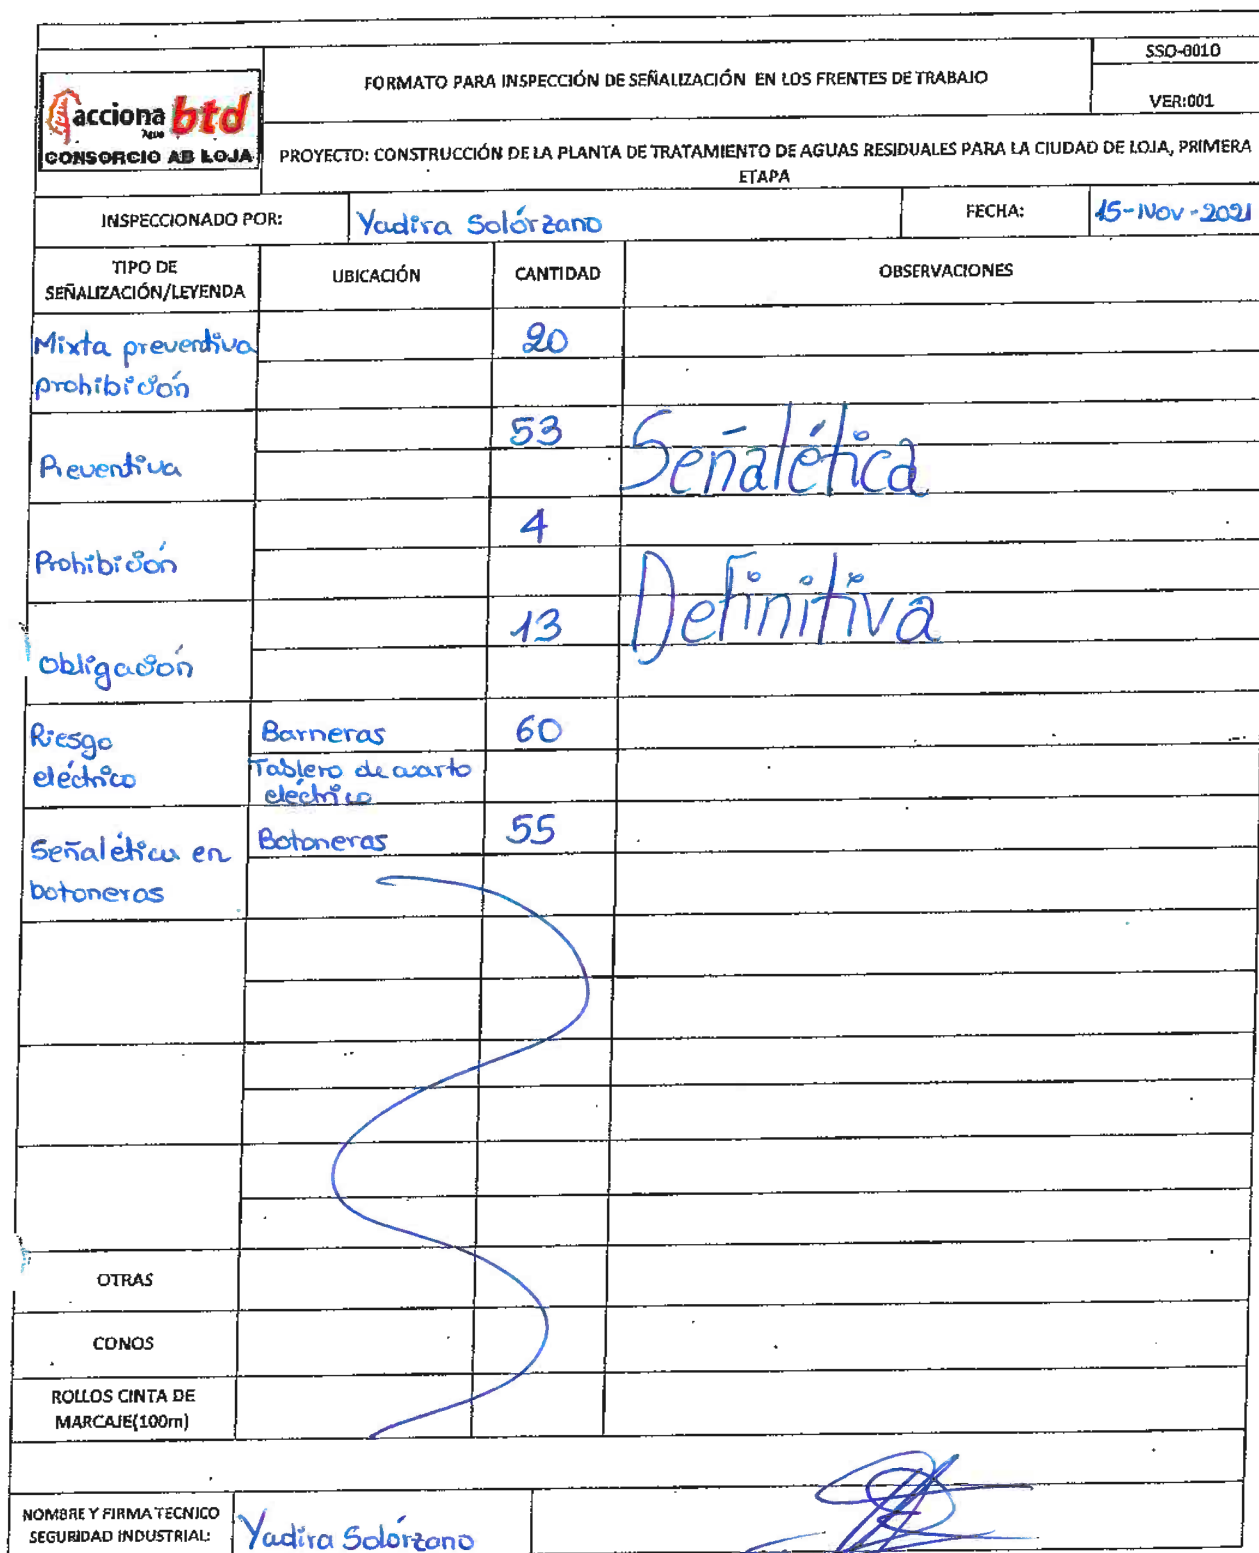 SSO-0010
FORMATO PARA INSPECCIÓN DE SEÑALIZACIÓN EN LOS FRENTES DE TRABAJO
VER:001
acciona btd
Agua
CONSORCIO AB LOJA
PROYECTO: CONSTRUCCIÓN DE LA PLANTA DE TRATAMIENTO DE AGUAS RESIDUALES PARA LA CIUDAD DE LOJA, PRIMERA
ETAPA
INSPECCIONADO POR: Yadira Solórzano FECHA: 15-Nov-2021
TIPO DE
SEÑALIZACIÓN/LEYENDA UBICACIÓN CANTIDAD OBSERVACIONES
Mixta preventiva 20
prohibición
Preventiva 53 Señalética
Prohibición 4
Obligación 13 Definitiva
Riesgo Barneras 60
eléctrico Tablero de cuarto
eléctrico
Señalética en Botoneras 55
botoneras
OTRAS
CONOS
ROLLOS CINTA DE
MARCAJE(100m)
NOMBRE Y FIRMA TECNICO
SEGURIDAD INDUSTRIAL: Yadira Solórzano